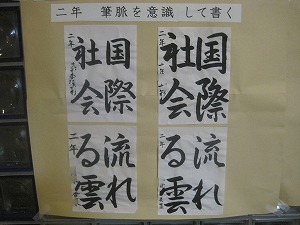 二年 筆脈を意識 して書く
国際
社会
二年
国際
社会
二年
流れ
る雲
二年
流れ
る雲
二年